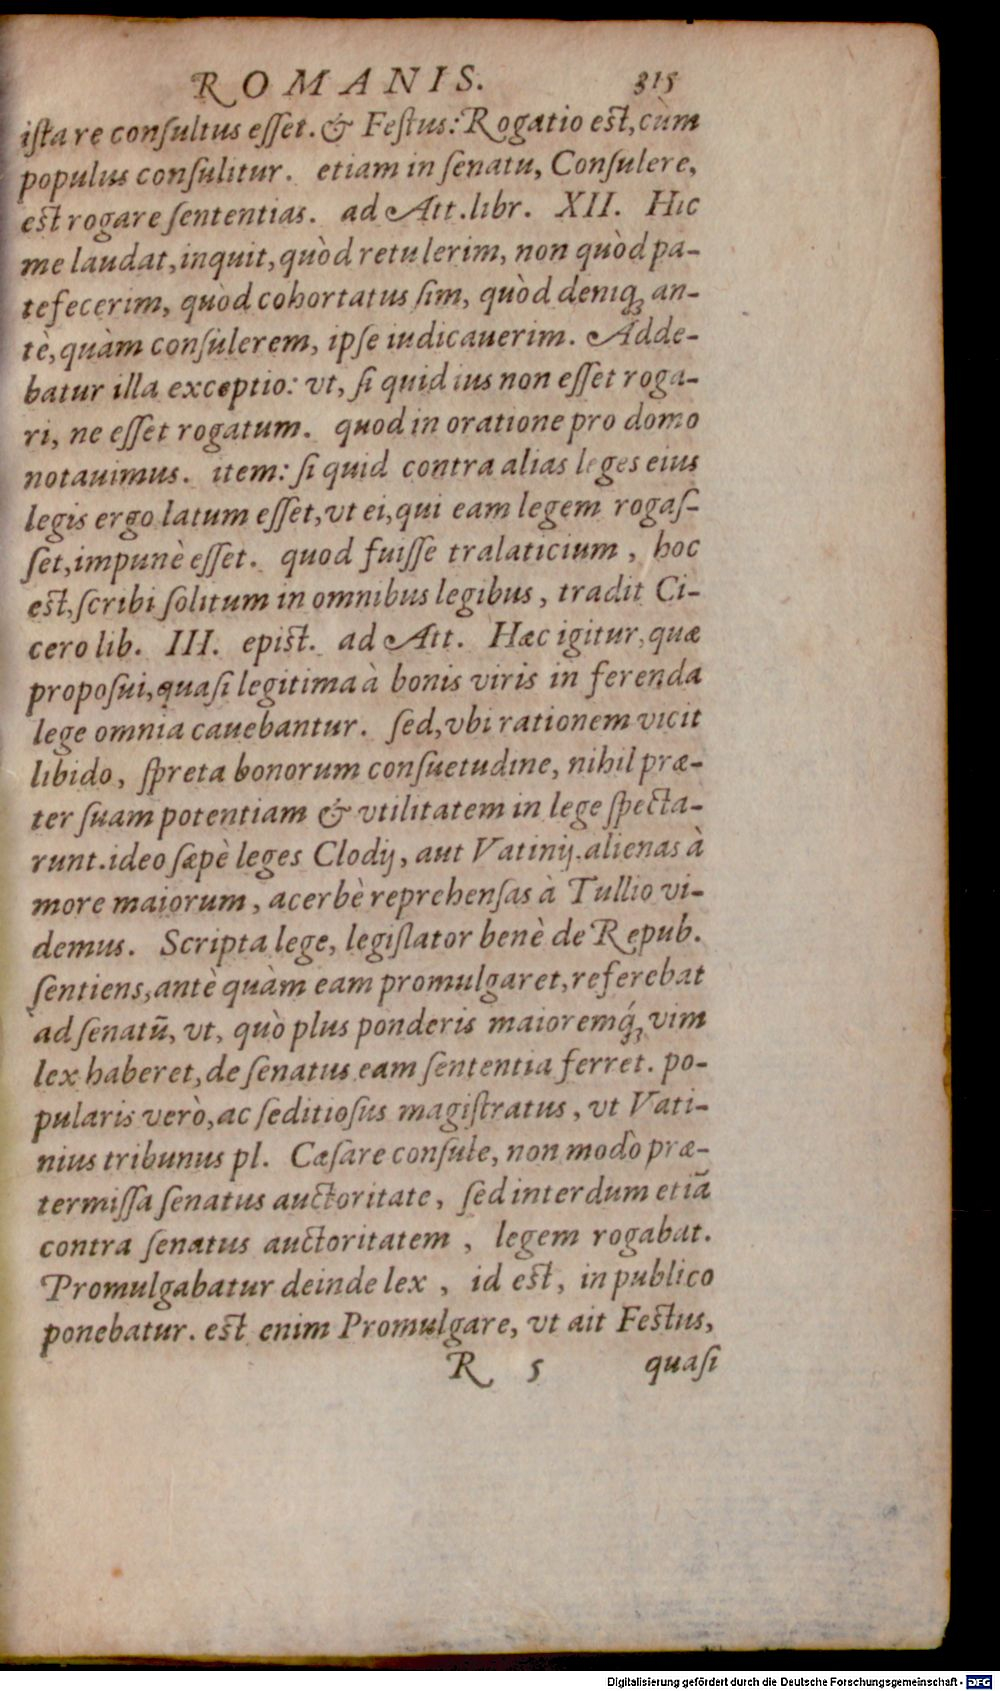 ROMANIS. 315
iſta re conſultus eſſet. & Feſtus: Rogatio eſt, cùm
populus conſulitur. etiam in ſenatu, Conſulere,
eſt rogare ſententias. ad Att. libr. XII. Hic
me laudat, inquit, quòd retulerim, non quòd pa-
tefecerim, quòd cohortatus ſim, quòd deniq́; an-
tè, quàm conſulerem, ipſe iudicauerim. Adde-
batur illa exceptio: vt, ſi quid ius non eſſet roga-
ri, ne eſſet rogatum. quod in oratione pro domo
notauimus. item: ſi quid contra alias leges eius
legis ergo latum eſſet, vt ei, qui eam legem rogaſ-
ſet, impunè eſſet. quod fuiſſe tralaticium, hoc
eſt, ſcribi ſolitum in omnibus legibus, tradit Ci-
cero lib. III. epiſt. ad Att. Hæc igitur, quæ
propoſui, quaſi legitima à bonis viris in ferenda
lege omnia cauebantur. ſed, vbi rationem vicit
libido, ſpreta bonorum conſuetudine, nihil præ-
ter ſuam potentiam & vtilitatem in lege ſpecta-
runt. ideo ſæpè leges Clodij, aut Vatinij. alienas à
more maiorum, acerbè reprehenſas à Tullio vi-
demus. Scripta lege, legiſlator benè de Repub.
ſentiens, antè quàm eam promulgaret, referebat
ad ſenatũ, vt, quò plus ponderis maioremq́; vim
lex haberet, de ſenatus eam ſententia ferret. po-
pularis verò, ac ſeditioſus magiſtratus, vt Vati-
nius tribunus pl. Cæſare conſule, non modò præ-
termiſſa ſenatus auctoritate, ſed interdum etiã
contra ſenatus auctoritatem, legem rogabat.
Promulgabatur deinde lex, id eſt, in publico
ponebatur. eſt enim Promulgare, vt ait Feſtus,
R 5 quaſi
Digitalisierung gefördert durch die Deutsche Forschungsgemeinschaft - DFG